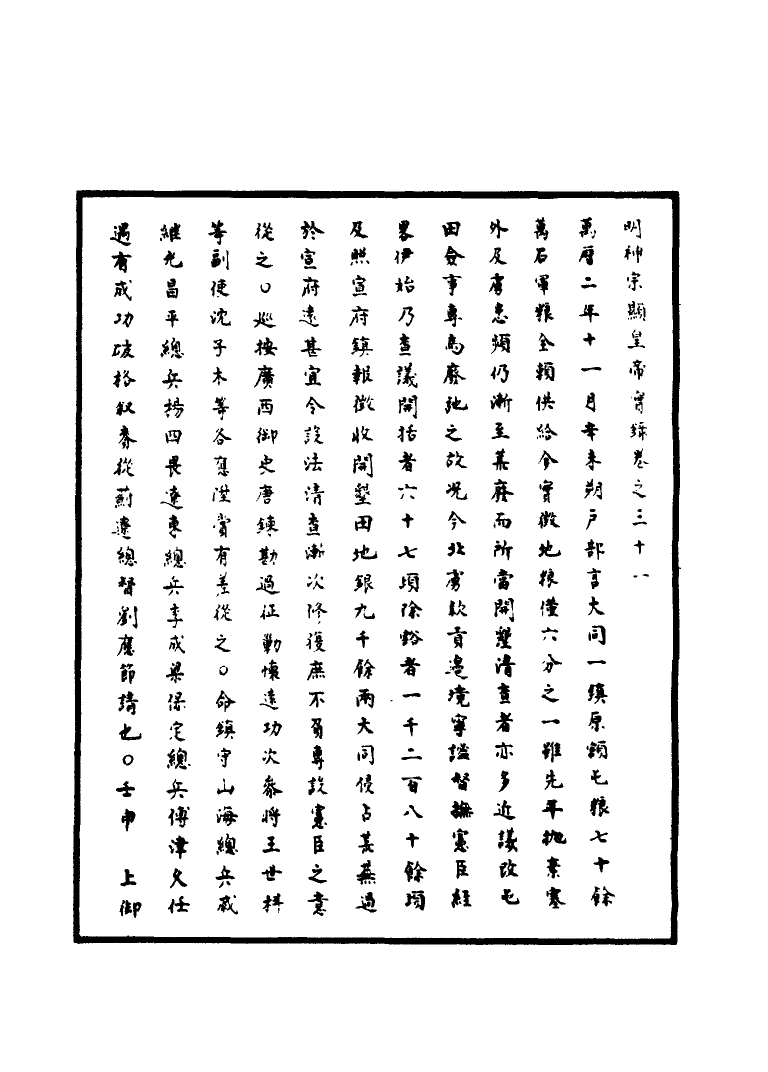 明神宗顯皇帝實錄卷之三十一
萬曆二年十一月辛未朔戶部言大同一鎮原額屯粮七十餘
萬石軍粮全頼供給今實徵地粮僅六分之一雖先年抛棄塞
外及虜患頻仍漸至荒廢而所當開墾清查者亦多近議改屯
田僉事專為廢弛之故况今北虜欵貢邊境寧謐督撫憲臣經
畧伊始乃查議開括者六十七頃除豁者一千二百八十餘頃
及照宣府鎮報徵收開墾田地銀九千餘兩大同侵占荒蕪過
於宣府遠甚宜令設法清查漸次修復庶不負專設憲臣之意
從之○巡按廣西御史唐鍊勘過征勦懷遠功次叅將王世科
等副使沈子木等各應陞賞有差從之○命鎮守山海總兵戚
継光昌平總兵楊四畏遼東總兵李成梁保定總兵傅津久任
遇有成功破格叙賚從薊遼總督劉應節請也○壬申　上御